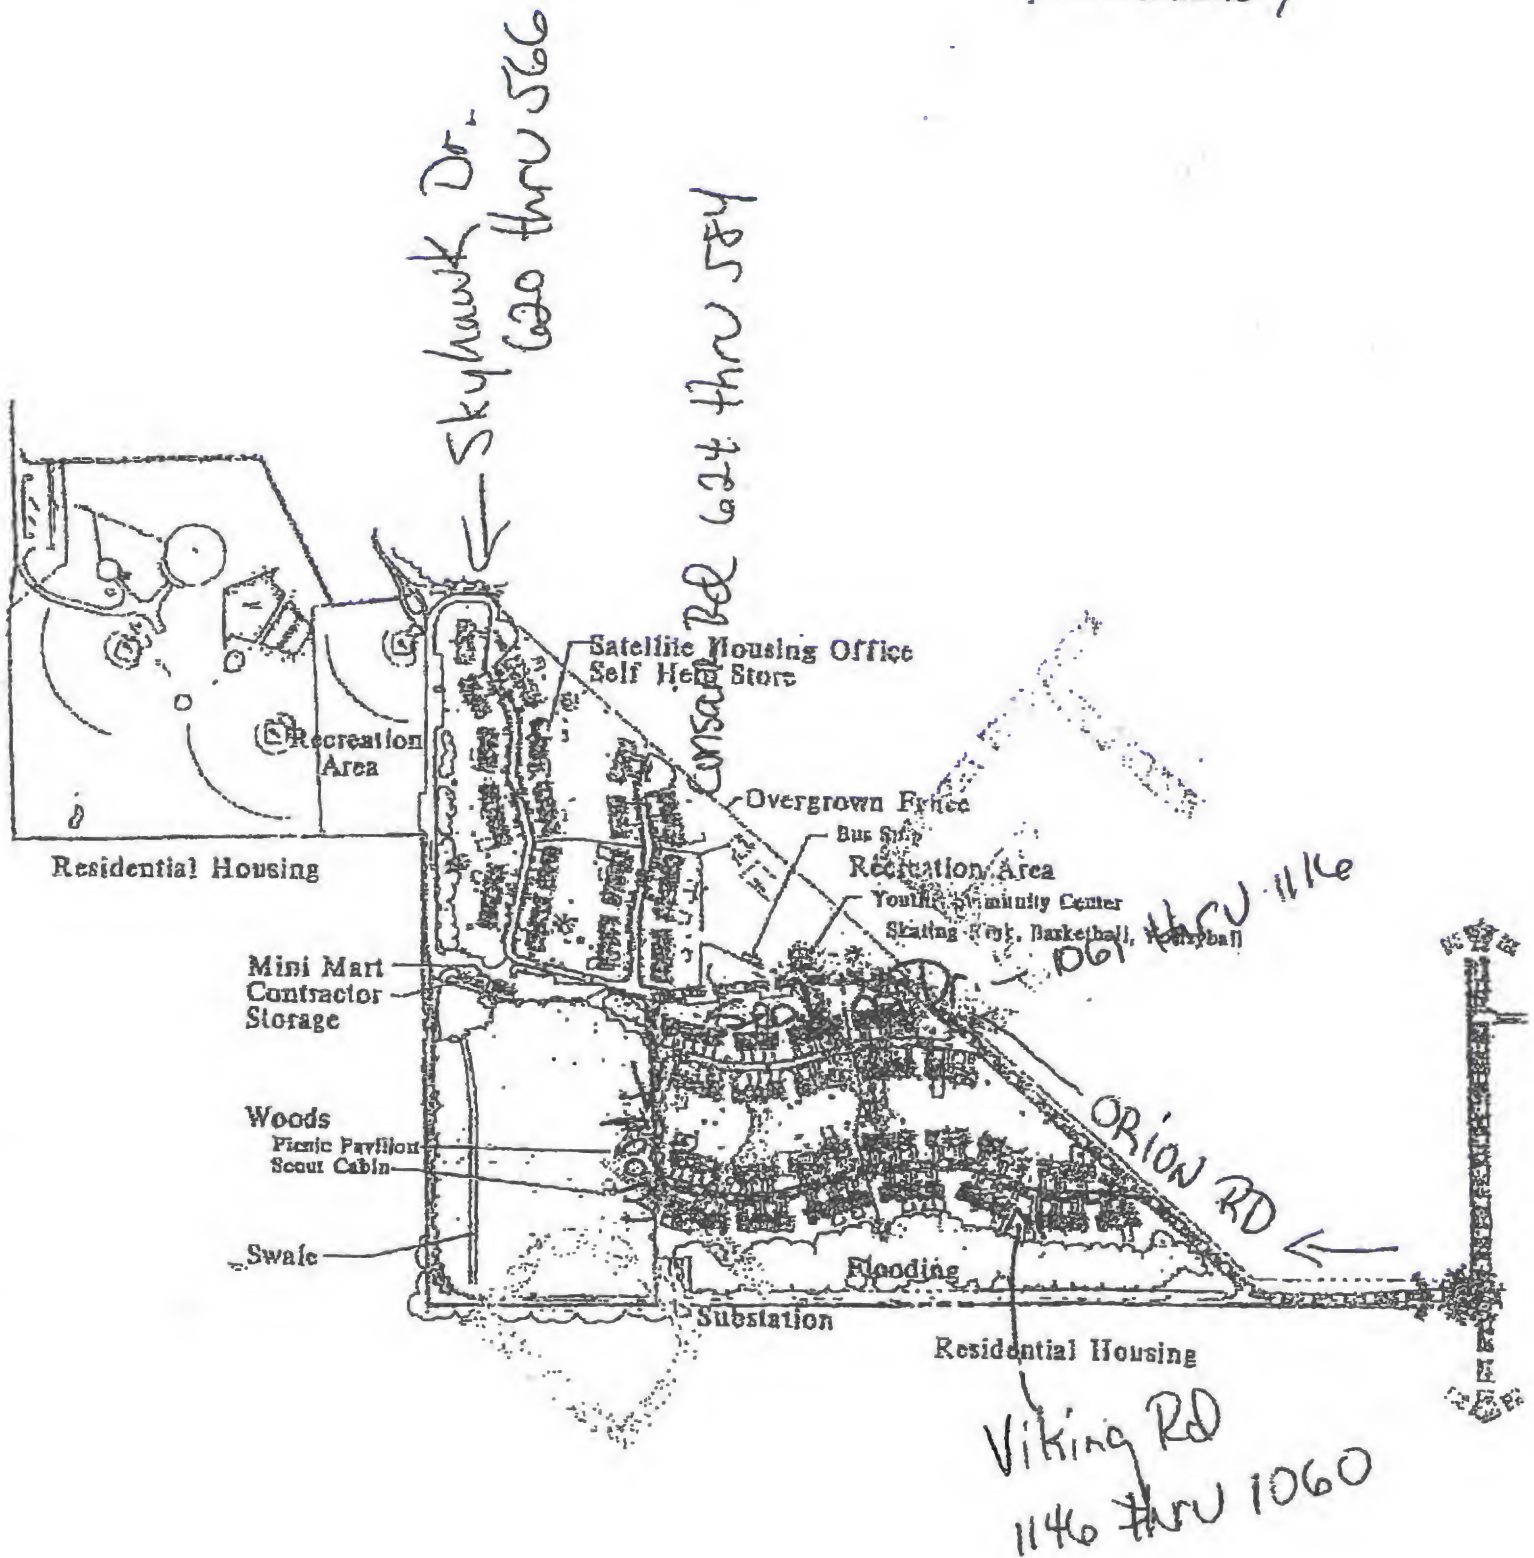 Skyhawk Dr.
620 thru 566
Rd 624 thru 584
Satellite Housing Office
Self Help Store
Recreation
Area
Overgrown Fence
Bus Stop
Residential Housing
Recreation Area
Youth Community Center
Skating Rink, Basketball, Volleyball
1061 thru 1116
Mini Mart
Contractor
Storage
ORION RD
Woods
Picnic Pavilion
Scout Cabin
Swale
Flooding
Substation
Residential Housing
Viking Rd
1146 thru 1060